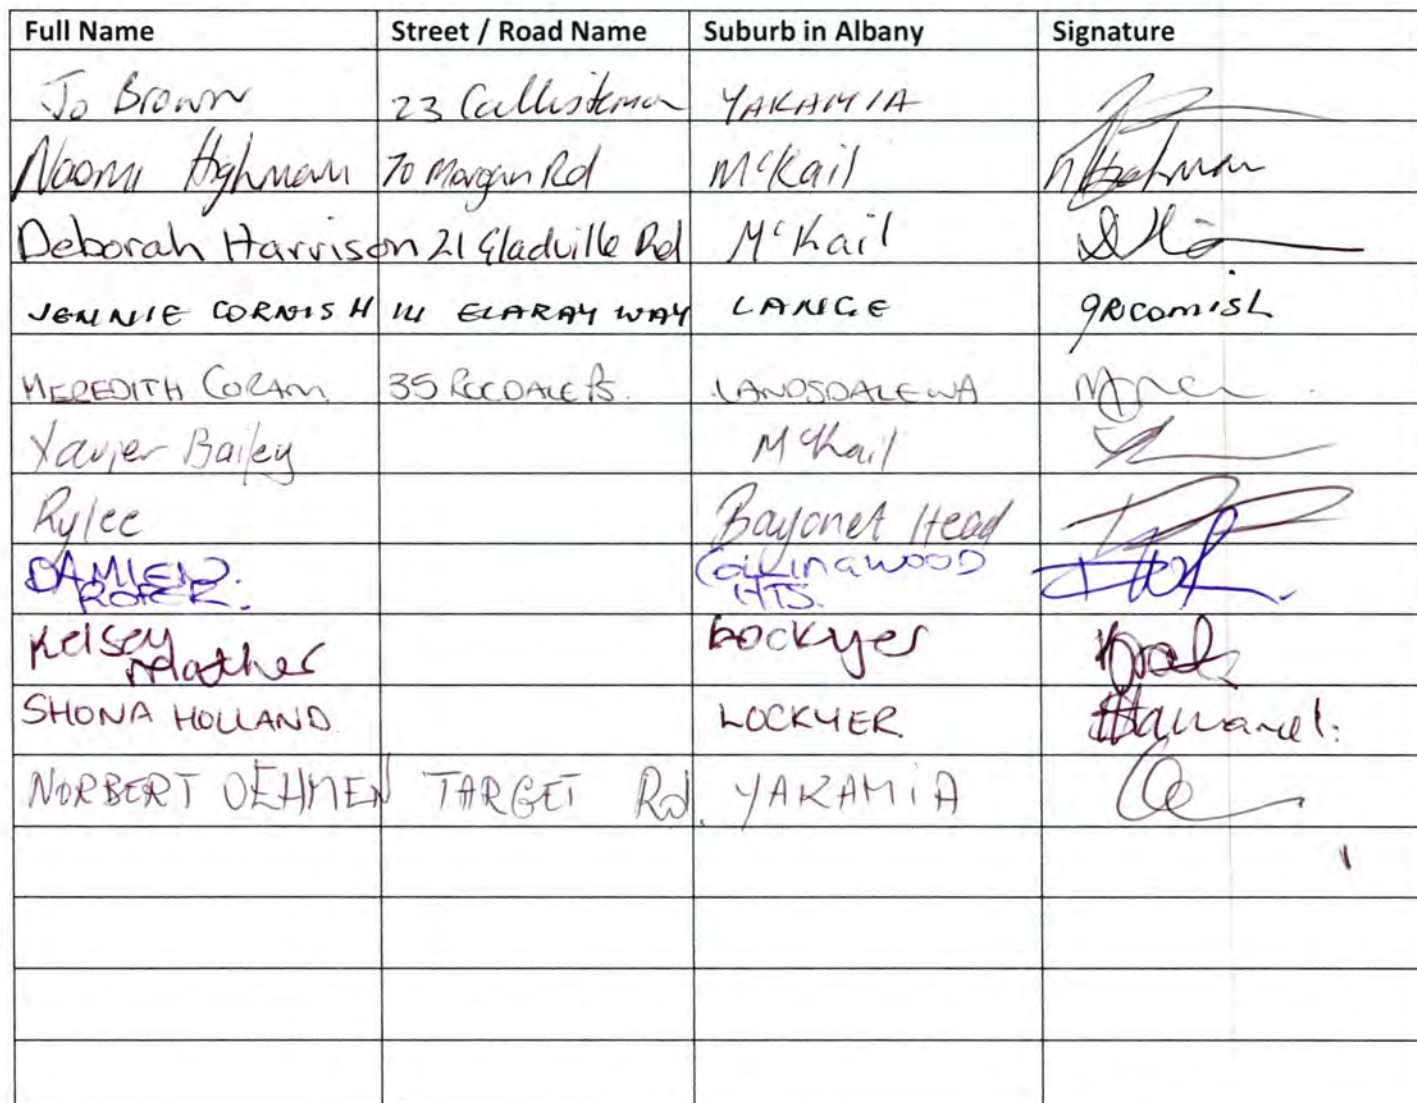 Full Name Street / Road Name Suburb in Albany Signature
Jo Brown 23 Callistemon YAKAMIA
Naomi Highman 70 Morgan Rd McKail
Deborah Harrison 21 Gladville Rd McKail
JENNIE CORNISH 111 ELARAY WAY LANGE
MEREDITH CORAM 35 LANDSDALE WA
Xavier Bailey McKail
Rylee Bayonet Head
DAMIEN. COLLINGWOOD
ROPER. HTS.
Kelsey Lockyer
Mather
SHONA HOLLAND LOCKYER
NORBERT OEHMEN TARGET Rd. YAKAMIA